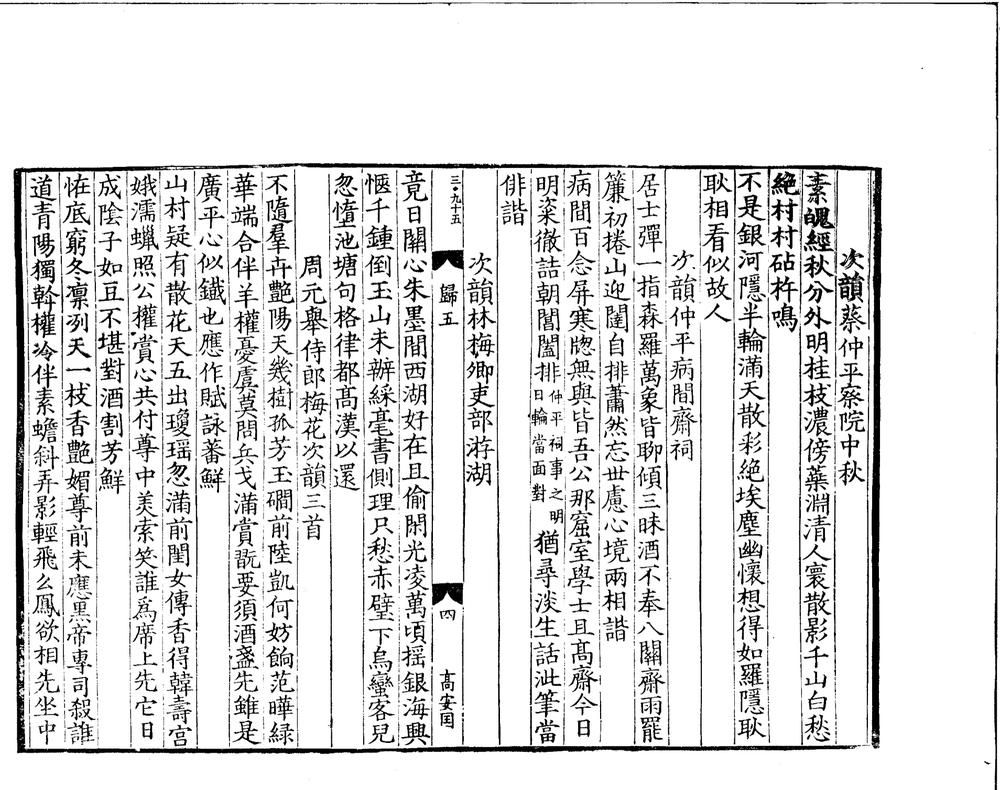 次韻蔡仲平察院中秋
素魄經秋分外明桂枝濃傍藥淵清人寰散影千山白愁
絕村村砧杵鳴
不是銀河隱半輪滿天散彩絕埃塵幽懷想得如羅隱耿
耿相看似故人
次韻仲平病間齋祠
居士彈一指森羅萬象皆聊傾三昧酒不奉八關齋雨罷
簾初捲山迎闥自排蕭然忘世慮心境兩相諧
病間百念屏寒牎無與皆吾公那窟室學士且髙齋今日
明粢徹詰朝閶闔排仲平祠事之明日輪當面對猶尋淡生話泚筆當
俳諧
次韻林梅卿吏部游湖
三·九十五
歸五
四
髙安囯
竟日關心朱墨間西湖好在且偷閑光凌萬頃揺銀海興
愜千鍾倒玉山未辦綵毫書側理只愁赤壁下烏蠻客兒
忽憶池塘句格律都髙漢以還
周元舉侍郎梅花次韻三首
不隨羣卉艷陽天幾樹孤芳玉磵前陸凱何妨餉范曄緑
華端合伴羊權憂虞莫問兵戈滿賞翫要須酒盞先雖是
廣平心似鐵也應作賦詠蕃鮮
山村疑有散花天五出瓊瑶忽滿前閨女傳香得韓壽宫
娥濡蠟照公權賞心共付尊中美索笑誰爲席上先它日
成陰子如豆不堪對酒割芳鮮
恠底窮冬凛冽天一枝香艷媚尊前未應黒帝專司殺誰
道青陽獨斡權冷伴素蟾斜弄影輕飛么鳳欲相先坐中